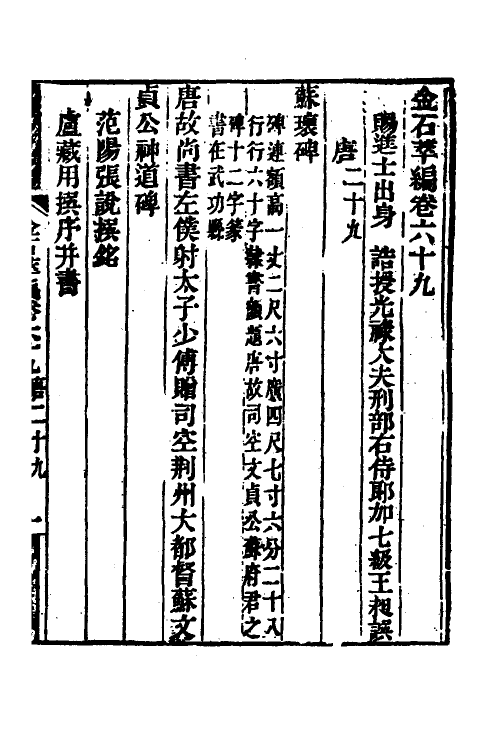 金石萃編卷六十九
賜進士出身 誥授光祿大夫刑部右侍郎加七級王昶譔
唐二十九
蘇瓌碑
碑連額高一丈二尺六寸廣四尺七寸六分二十八
行行六十字隸書額題唐故司空文貞公蘇府君之
碑十二字篆
書在武功縣
唐故尚書左僕射太子少傅贈司空荆州大都督蘇文
貞公神道碑
范陽張說撰銘
盧藏用撰序幷書
金石萃編卷六十九 唐二十九 一